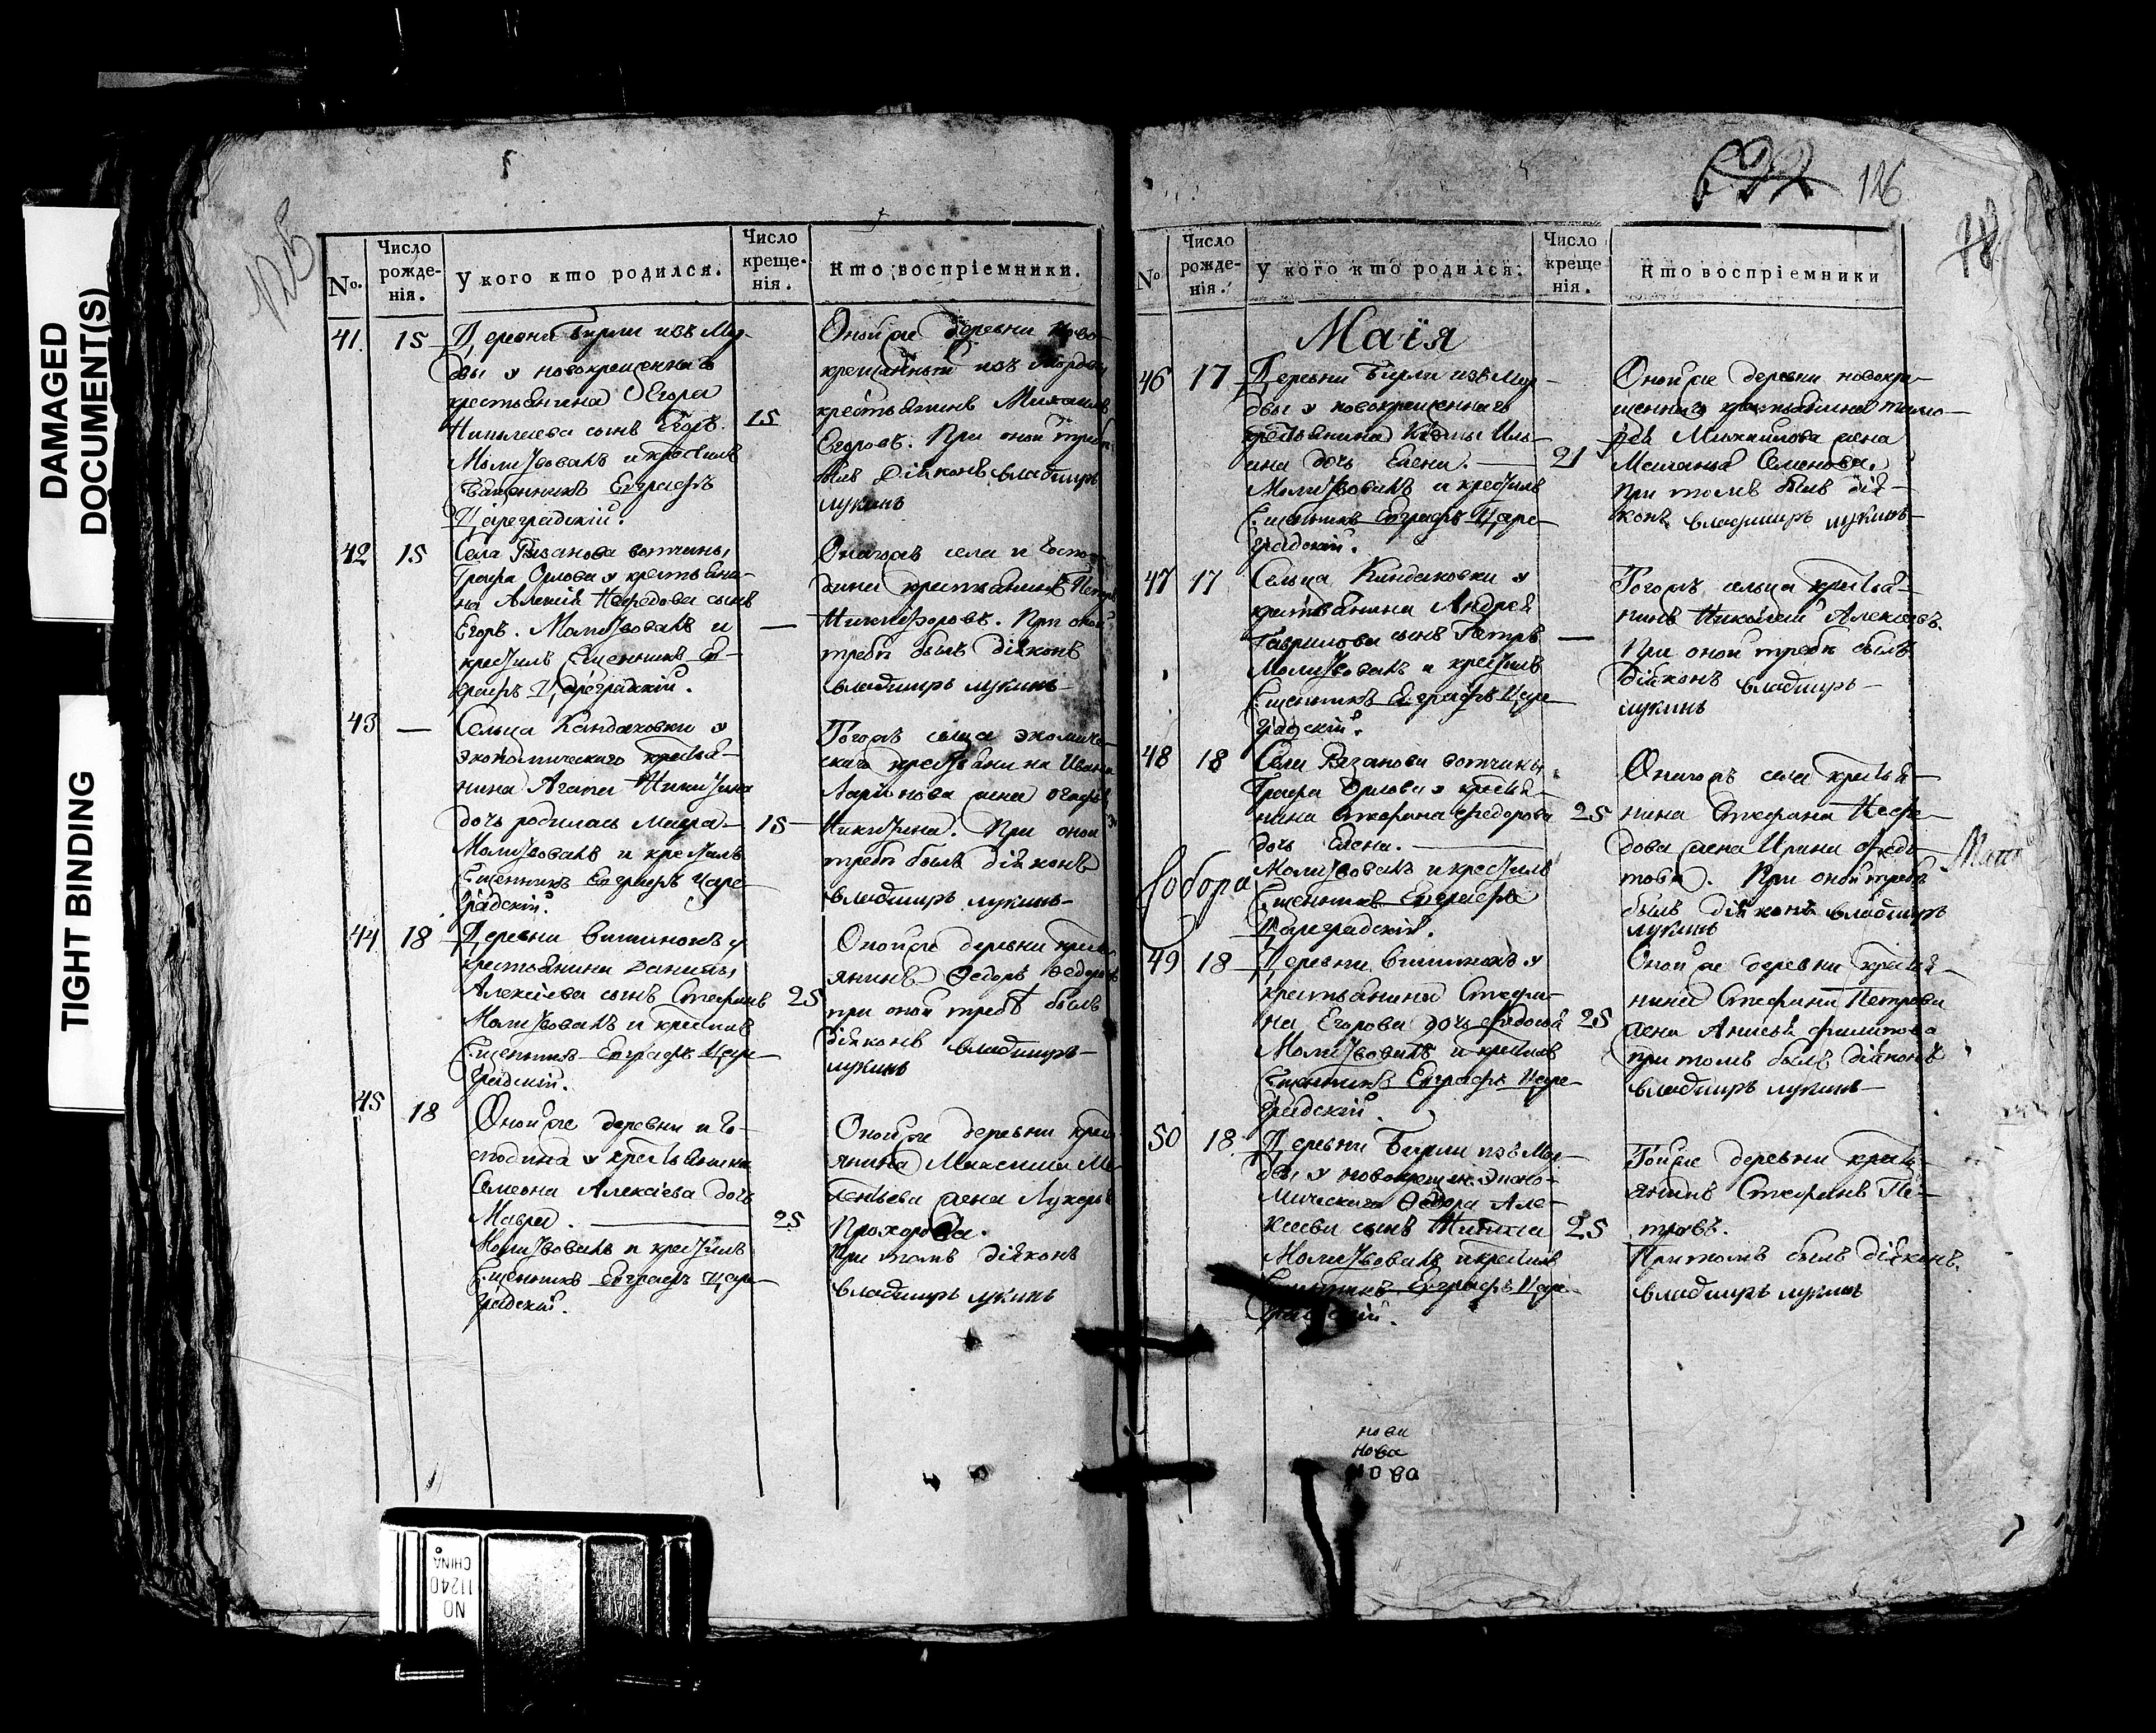 DAMAGED
DOCUMENT(S)
TIGHT BINDING
125
№.
Число
рожде-
нія.
У кого кто родился.
Число
креще-
нія.
Кто воспріемники.
41.
15
Деревни Бирли изъ Мор-
двы у новокрещеннаго
крестьянина Егора
сынъ Егоръ.
Молитвовалъ и крестилъ
Священникъ Евграфъ
Цареградскій.
15
Оной же деревни ново-
крещенный изъ мордвы
крестьянинъ Михаилъ
Егоровъ. При оной требѣ
былъ Діяконъ владимиръ
лукинъ
42
15
Села Рязанова вотчины
Графа Орлова у крестьяни-
на Алексея Нефедова сынъ
Егоръ. Молитвовалъ и
крестилъ Священникъ Ев-
графъ Цареградскій.
—
Онагожъ села и Госпо-
дина крестьянинъ Петръ
Никифоровъ. При оной
требѣ былъ діяконъ
владимиръ лукинъ
43
—
Сельца Кандаковки у
экономическаго крестья-
нина Агапа Никитина
дочь родилась Мавра
Молитвовалъ и крестилъ
Священникъ Евграфъ Царе-
градскій.
15
Тогожъ сельца экономиче-
скаго крестьянина Ивана
Ларинова жена
Никитина. При оной
требѣ былъ діяконъ
владимиръ лукинъ
44
18
Деревни Вишинокъ у
крестьянина Данилы
Алексіева сынъ Стефанъ
Молитвовалъ и крестилъ
Священникъ Евграфъ Царе-
градскій.
25
Оной же деревни кресть-
янинъ Ѳедоръ Ѳедоровъ
при оной требѣ былъ
діяконъ владимиръ
лукинъ
45
18
Оной же деревни и Го-
сподина у крестьянина
Семеона Алексіева дочь
Мавра.
Молитвовалъ и крестилъ
Священникъ Евграфъ Царе-
градскій.
25
Оной же деревни кресть-
янина Максима
жена Лукерья
Прохорова.
При томъ діяконъ
владимиръ лукинъ
126
18
№
Число
рожде-
нія.
У кого кто родился.
Число
креще
нія.
Кто воспріемники
Маія
46
17
Деревни Бирли изъ Мор-
двы у новокрещеннаго
крестьянина Козмы Иль-
ина дочь Елена.
Молитвовалъ и крестилъ
Священникъ Евграфъ Царе-
градскій.
21
Оной же деревни новокре-
щеннаго крестьянина
Михайлова жена
Меланья Семенова.
При томъ былъ дія-
конъ владимиръ лукинъ
47
17
Сельца Кандаковки у
крестьянина Андрея
Гаврилова сынъ Петръ
Молитвовалъ и крестилъ
Священникъ Евграфъ Царе-
градскій.
—
Тогожъ сельца крестья-
нинъ Николай Алексеевъ.
При оной требѣ былъ
Діяконъ владимиръ
лукинъ
48
18
Села Рязанова вотчины
Графа Орлова у крестья-
нина Стефана Федорова
дочь Елена.
Молитвовалъ и крестилъ
Священникъ Евграфъ
Цареградскій.
25
Онагожъ села крестья-
нина Стефана Нефе-
дова жена Ирина Федо-
това. При оной требѣ
былъ діяконъ владимиръ
лукинъ
Собора
49
18
Деревни Вишинокъ у
крестьянина Стефа-
на Егорова дочь Федосья
Молитвовалъ и крестилъ
Священникъ Евграфъ Царе-
градскій.
25
Оной же деревни крестья-
нина Стефана Петрова
жена Анисья Филипова
при томъ былъ діяконъ
владимиръ лукинъ
50
18
Деревни Бирли изъ Мор-
двы у новокрещен. эконо-
мическаго Ѳедора Але-
ксеева сынъ Никита
Молитвовалъ и крестилъ
Священникъ Евграфъ Царе-
градскій.
25
Той же деревни кресть-
янинъ Стефанъ Пе-
тровъ.
При томъ былъ діяконъ
владимиръ лукинъ
нова
нова
нова
NO
11240
CHINA